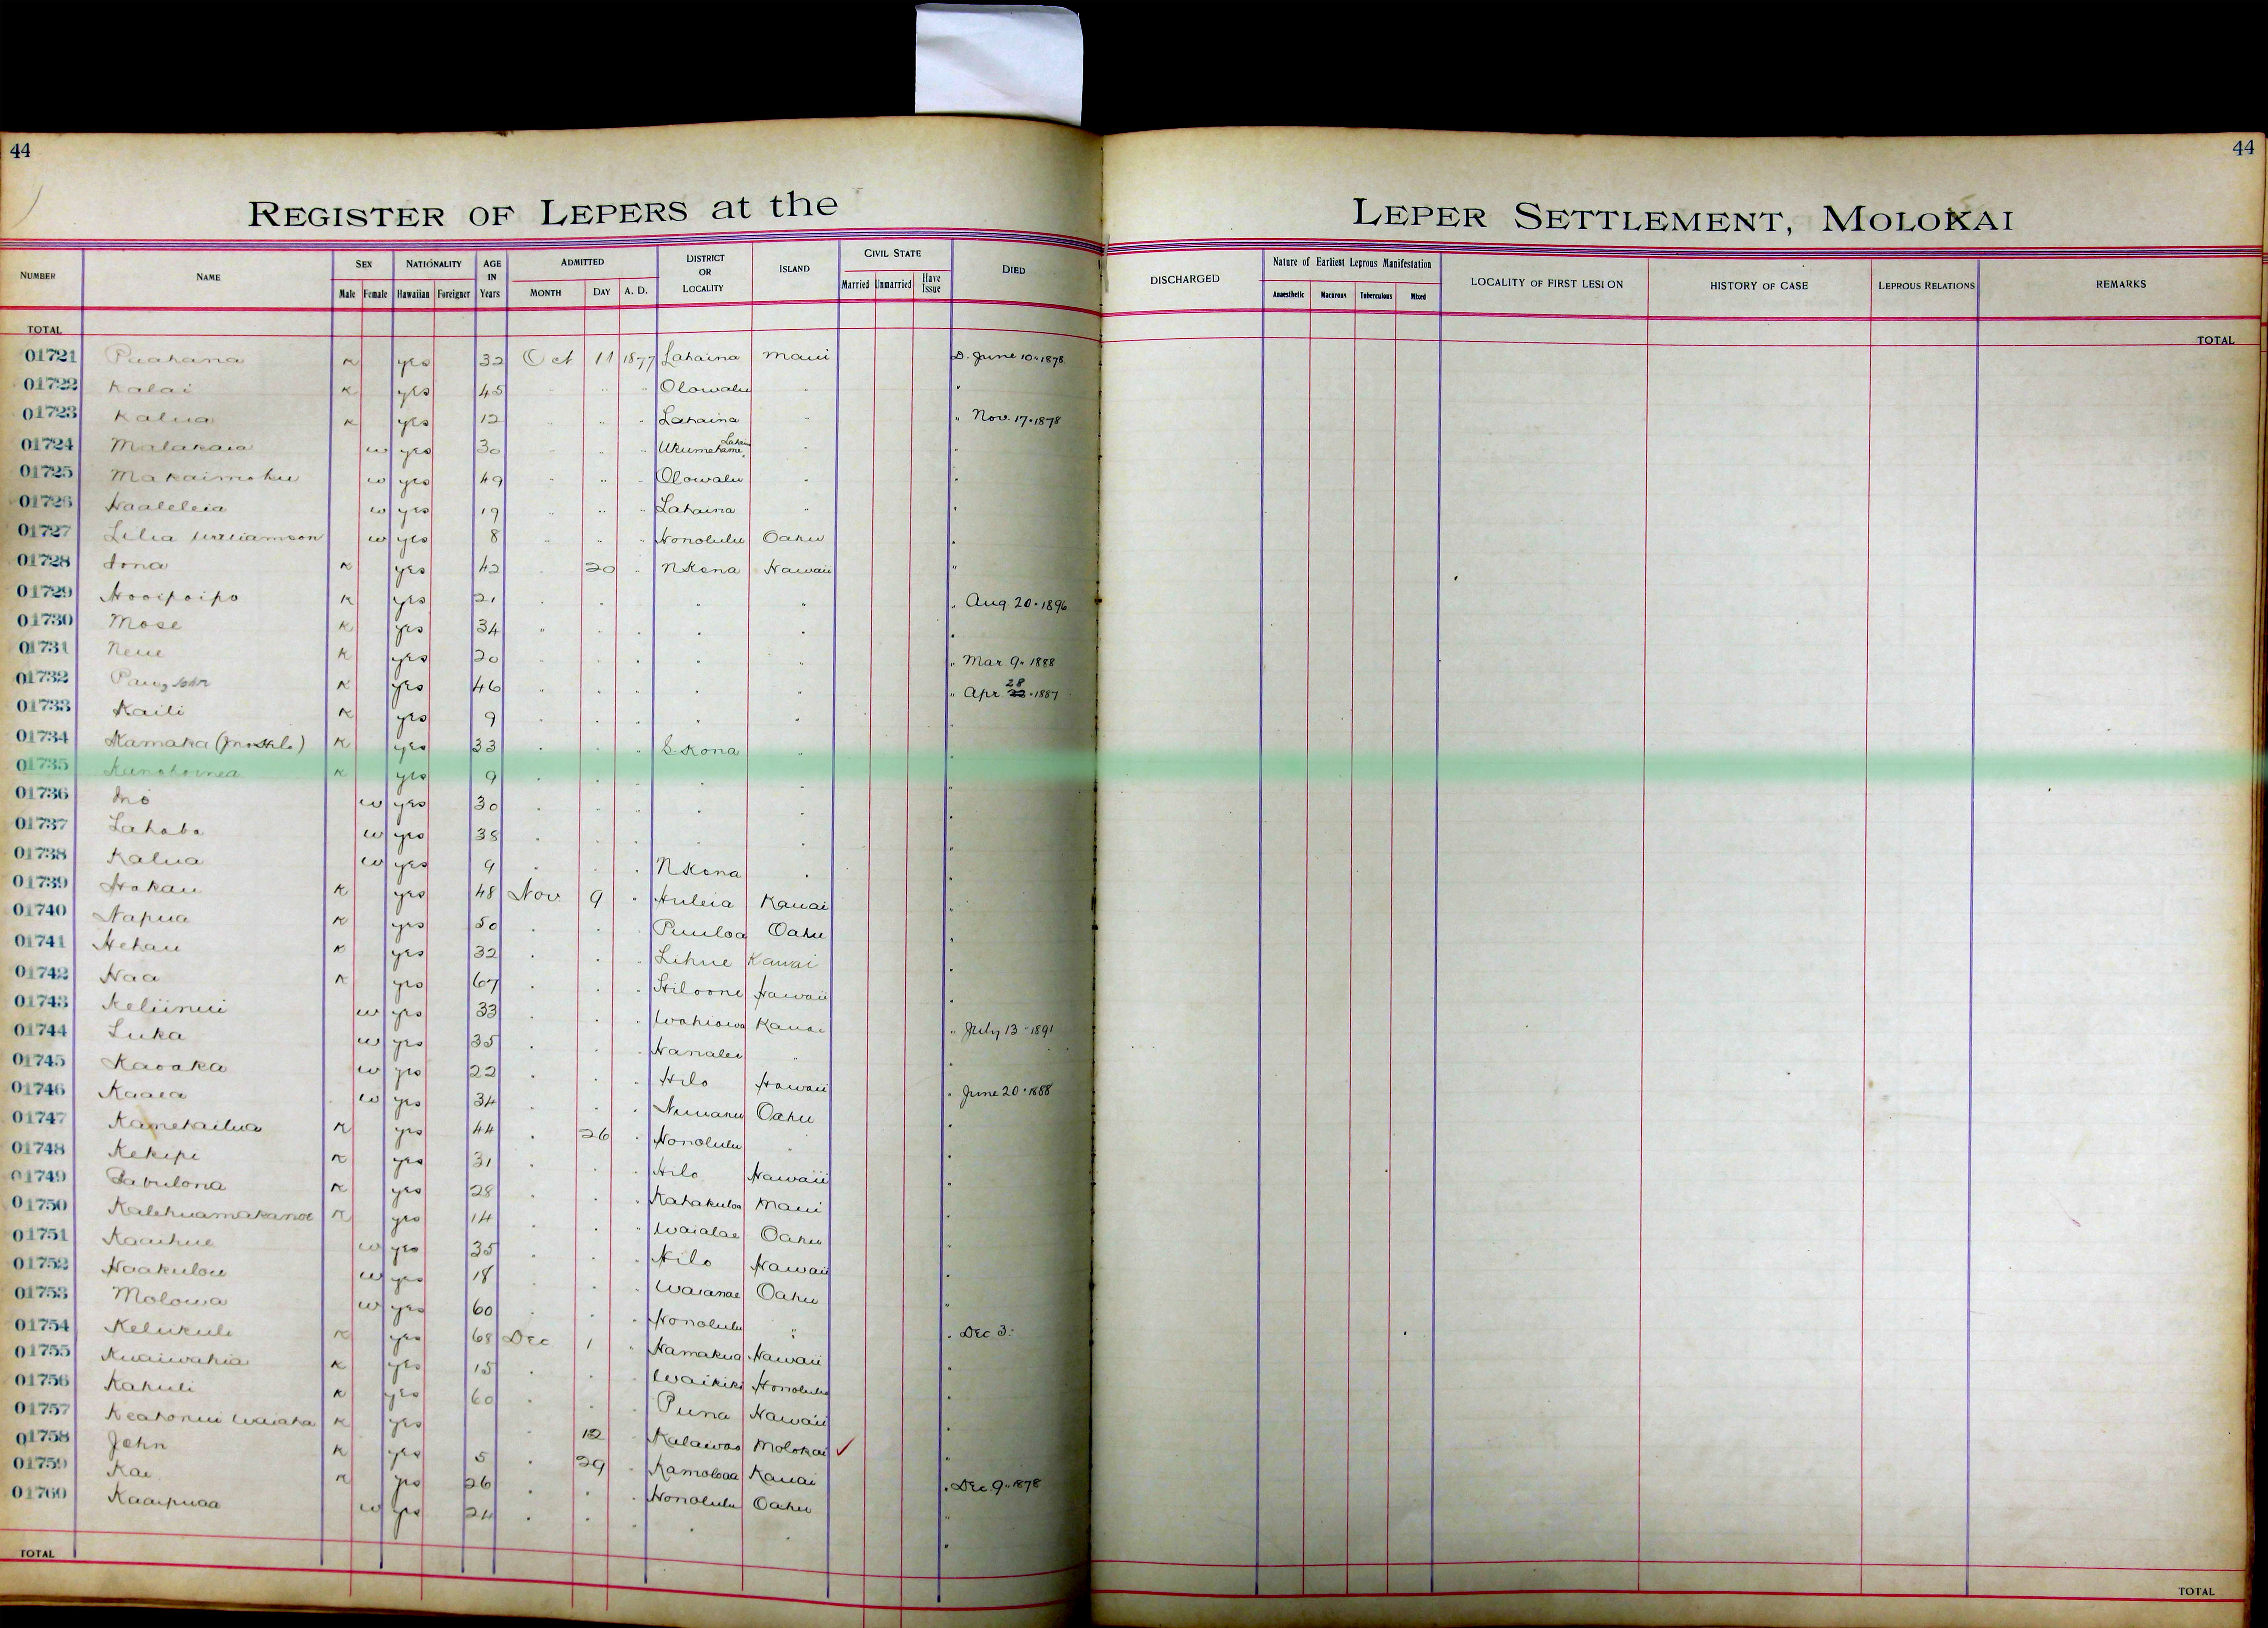 44
44
REGISTER OF LEPERS at the
LEPER SETTLEMENT, MOLOKAI
NUMBER NAME SEX Male Female NATIONALITY Hawaiian Foreigner AGE IN Years ADMITTED MONTH DAY A. D. DISTRICT OR LOCALITY ISLAND CIVIL STATE Married Unmarried Have Issue DIED
DISCHARGED Nature of Earliest Leprous Manifestation Anaesthetic Macurous Tuberculous Mixed LOCALITY OF FIRST LESION HISTORY OF CASE LEPROUS RELATIONS REMARKS
TOTAL
TOTAL
01721 Puahana K yes 32 Oct 11 1877 Lahaina Maui D. June 10. 1878
01722 Kalai K yes 45 " " " Olowalu " "
01723 Kalua K yes 12 " " " Lahaina " " Nov. 17. 1878
01724 Malakaia w yes 30 " " " Ukumehame, " "
01725 Makaimoku w yes 49 " " " Olowalu " "
01726 Haaleleia w yes 19 " " " Lahaina " "
01727 Lilia Williamson w yes 8 " " " Honolulu Oahu "
01728 Iona K yes 42 " 20 " N Kona Hawaii "
01729 Hooipoipo K yes 21 " " " " " Aug. 20. 1896
01730 Mose K yes 34 " " " " " "
01731 Neue K yes 20 " " " " " " Mar. 9. 1888
01732 John K yes 46 " " " " " " Apr 28 1887
01733 Kaili K yes 9 " " " " " "
01734 Kamaka K yes 33 " " " S. Kona " "
01735 K yes 9 " " " " " "
01736 w yes 30 " " " " " "
01737 w yes 38 " " " " " "
01738 Kalua w yes 9 " " " N Kona " "
01739 Hokau K yes 48 Nov 9 " Huleia Kauai "
01740 Napua K yes 50 " " " Puuloa Oahu "
01741 Hehau K yes 32 " " " Lihue Kauai "
01742 Naa K yes 67 " " " Hiloone Hawaii "
01743 Keliinui w yes 33 " " " Wahiawa Kauai " July 13 " 1891
01744 Luka w yes 35 " " " Hanalei " "
01745 Kaoaka w yes 22 " " " Hilo Hawaii " June 20 " 1888
01746 Kaaea w yes 34 " " " Nuuanu Oahu "
01747 Kamehailua K yes 44 " 26 " Honolulu " "
01748 Kekipi K yes 31 " " " Hilo Hawaii "
01749 Zabulona K yes 28 " " " Kahakuloa Maui "
01750 K yes 14 " " " Waialae Oahu "
01751 Kaaihue w yes 35 " " " Hilo Hawaii "
01752 Haakulou w yes 18 " " " Waianae Oahu "
01753 Molowa w yes 60 " " " Honolulu " " Dec 3.
01754 Kelikuli K yes 68 Dec 1 " Hamakua Hawaii "
01755 Kuaiwahia K yes 15 " " " Waikiki Honolulu "
01756 Kahuli K yes 60 " " " Puna Hawaii "
01757 Keahonui Waiaha K yes " 12 " Kalawao Molokai ✓ "
01758 John K yes 5 " 29 " Kamoloaa Kauai " Dec 9. 1878
01759 Kai K yes 26 " " " Honolulu Oahu "
01760 Kaaipuaa w yes 24 " " " " " "
TOTAL
TOTAL